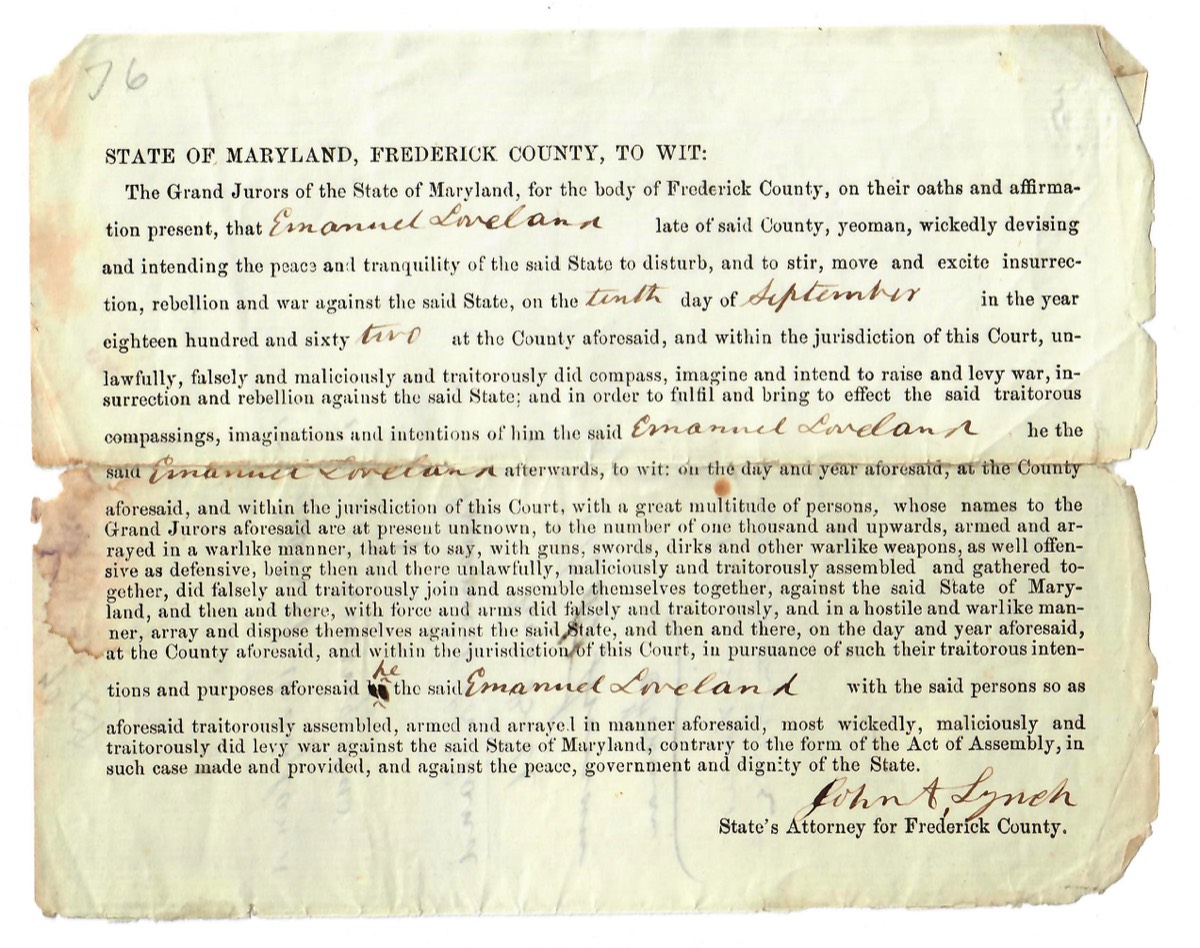 76
STATE OF MARYLAND, FREDERICK COUNTY, TO WIT:
The Grand Jurors of the State of Maryland, for the body of Frederick County, on their oaths and affirma-
tion present, that Emanuel Loveland late of said County, yeoman, wickedly devising
and intending the peace and tranquility of the said State to disturb, and to stir, move and excite insurrec-
tion, rebellion and war against the said State, on the tenth day of September in the year
eighteen hundred and sixty two at the County aforesaid, and within the jurisdiction of this Court, un-
lawfully, falsely and maliciously and traitorously did compass, imagine and intend to raise and levy war, in-
surrection and rebellion against the said State; and in order to fulfil and bring to effect the said traitorous
compassings, imaginations and intentions of him the said Emanuel Loveland he the
said Emanuel Loveland afterwards, to wit: on the day and year aforesaid, at the County
aforesaid, and within the jurisdiction of this Court, with a great multitude of persons, whose names to the
Grand Jurors aforesaid are at present unknown, to the number of one thousand and upwards, armed and ar-
rayed in a warlike manner, that is to say, with guns, swords, dirks and other warlike weapons, as well offen-
sive as defensive, being then and there unlawfully, maliciously and traitorously assembled and gathered to-
gether, did falsely and traitorously join and assemble themselves together, against the said State of Mary-
land, and then and there, with force and arms did falsely and traitorously, and in a hostile and warlike man-
ner, array and dispose themselves against the said State, and then and there, on the day and year aforesaid,
at the County aforesaid, and within the jurisdiction of this Court, in pursuance of such their traitorous inten-
tions and purposes aforesaid he the said Emanuel Loveland with the said persons so as
aforesaid traitorously assembled, armed and arrayed in manner aforesaid, most wickedly, maliciously and
traitorously did levy war against the said State of Maryland, contrary to the form of the Act of Assembly, in
such case made and provided, and against the peace, government and dignity of the State.
John A. Lynch
State's Attorney for Frederick County.